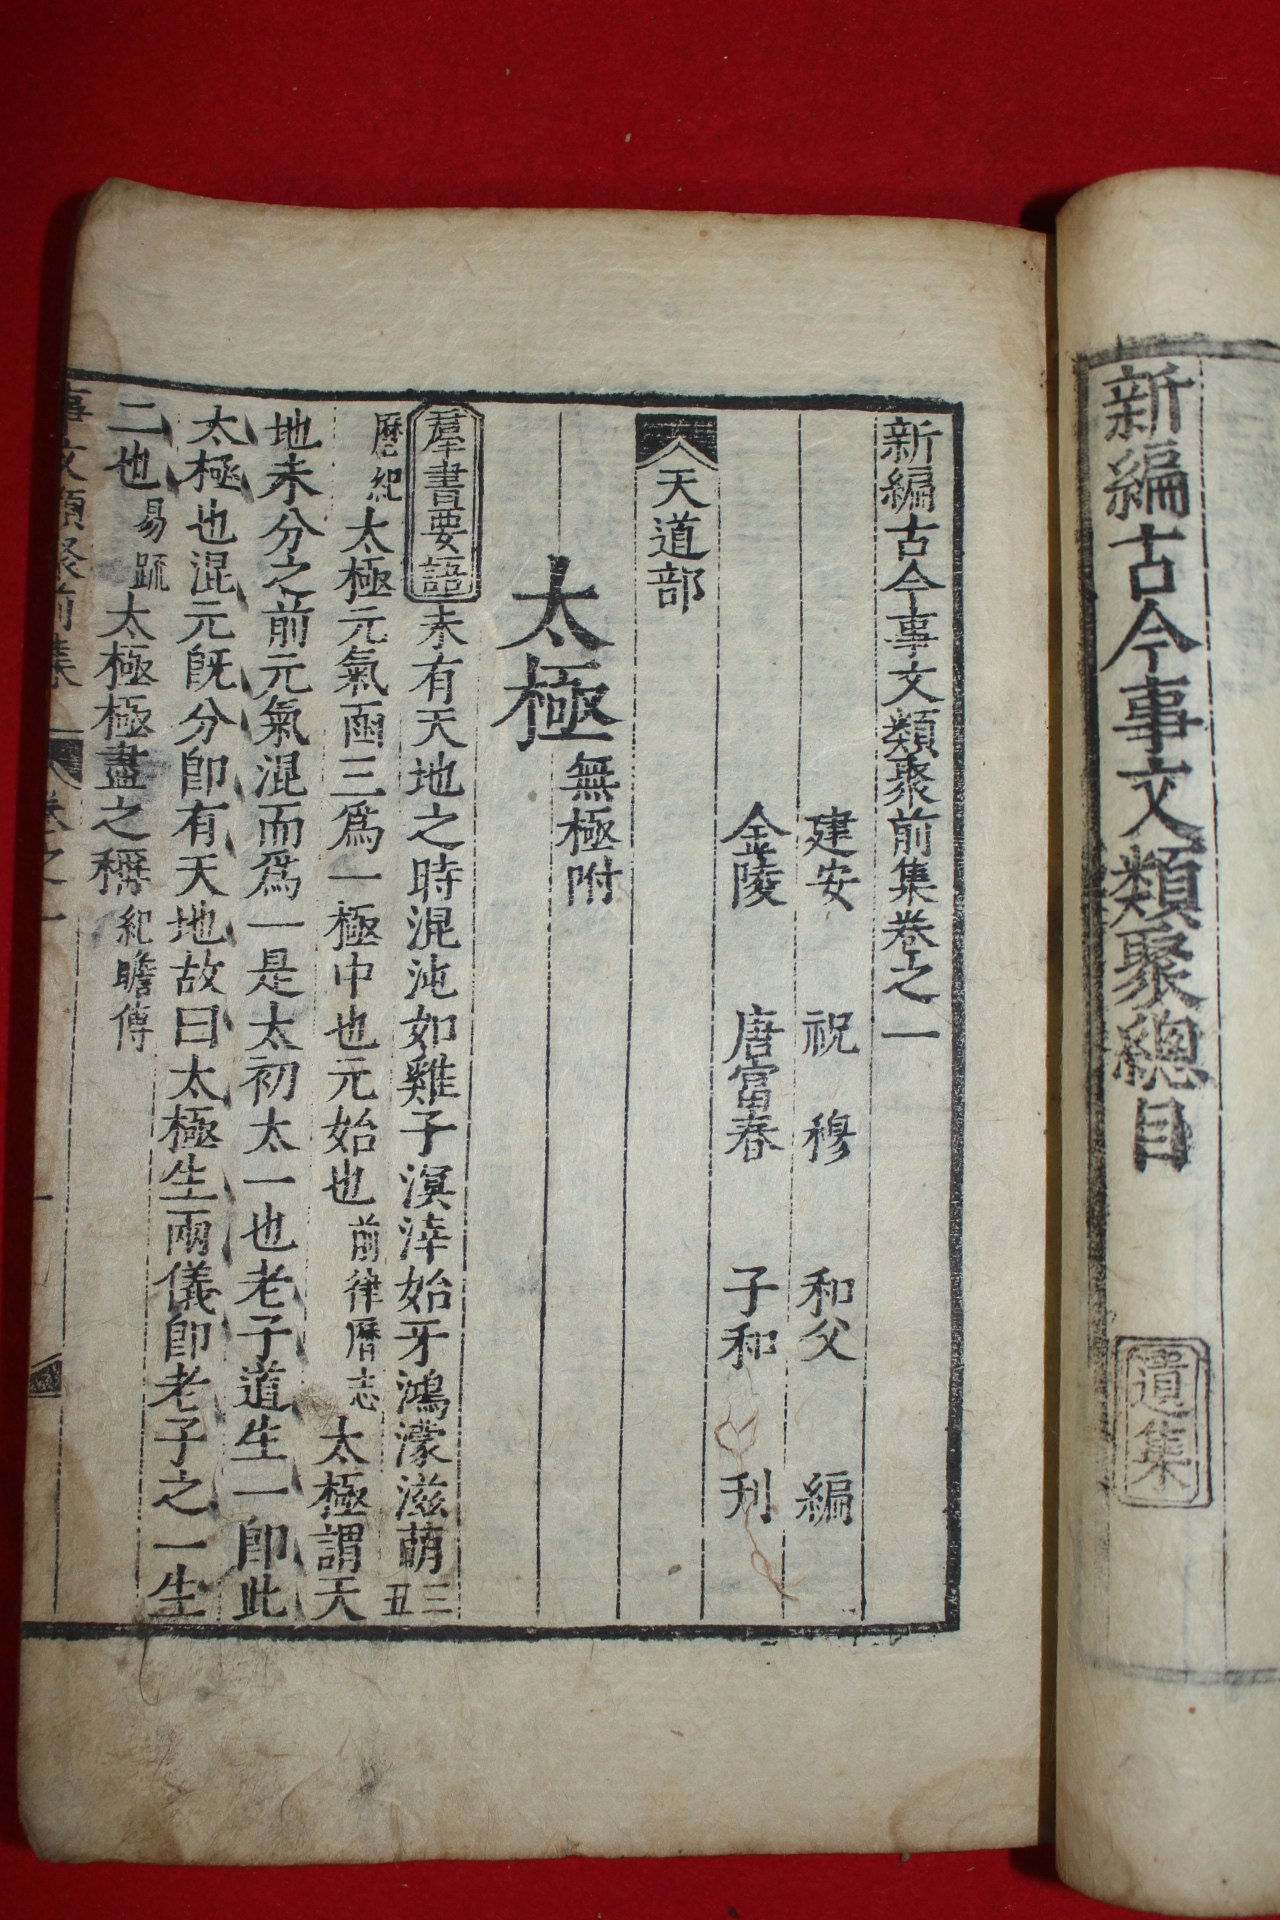 新編古今事文類聚總目
遺集
新編古今事文類聚前集卷之一
建安 祝 穆 和父 編
金陵 唐富春 子和 刋
天道部
太極 無極附
羣書要語 未有天地之時混沌如雞子溟涬始牙鴻濛滋萌 三五
歷紀 太極元氣函三爲一極中也元始也 前律曆志 太極謂天
地未分之前元氣混而爲一是太初太一也老子道生一卽此
太極也混元旣分卽有天地故曰太極生兩儀卽老子之一生
二也 易疏 太極極盡之稱 紀瞻傳
事文類聚前集 卷之一 一